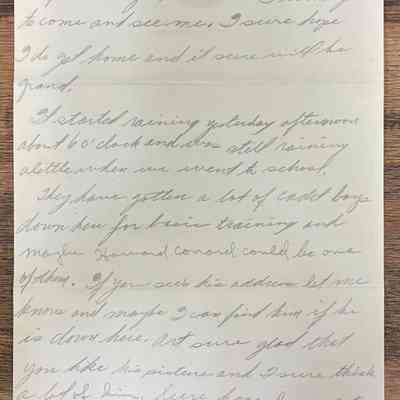 to come and see me. I sure hope
I do get home and it sure will be
grand.
It started raining yesterday afternoon
about 6 o'clock and was still raining
a little when we went to school.
They have gotten a lot of cadet boys
down here for basic training and
maybe Howard Conard could be one
of them. If you see his address let me
know and maybe I can find him if he
is down here. Art sure glad that
you like his picture and I sure think
a lot of him. Sure hope